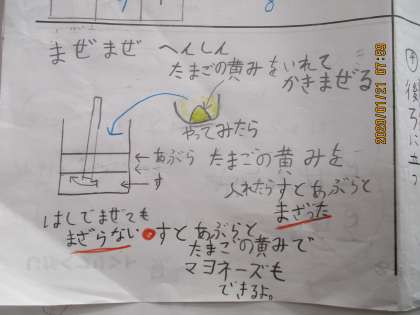 まぜまぜ へんしん
たまごの黄みをいれて
かきまぜる
やってみたら
あぶら
す
たまごの黄みを
入れたらすとあぶらと
まざった
はしでまぜても
まざらない
すとあぶらと
たまごの黄みで
マヨネーズも
できるよ。
後ろに立つ
2020/01/21 07:28